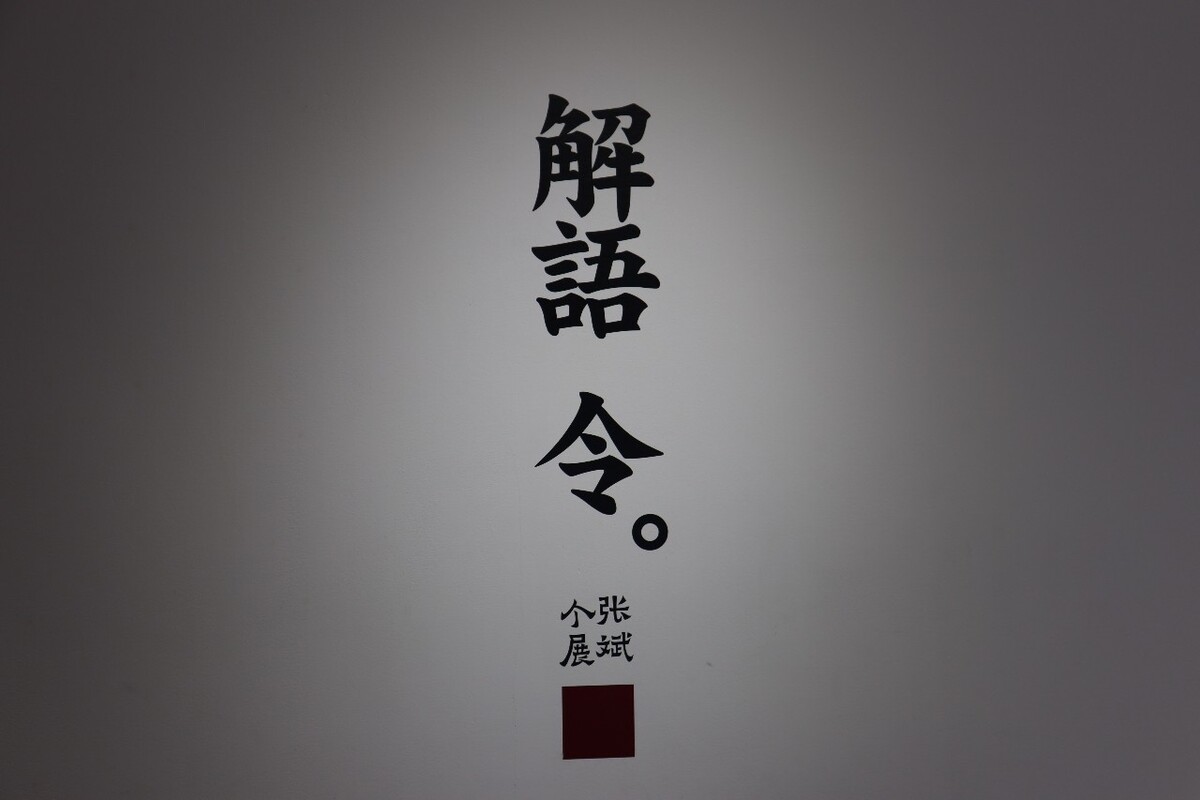 解語 令。
张斌
个展